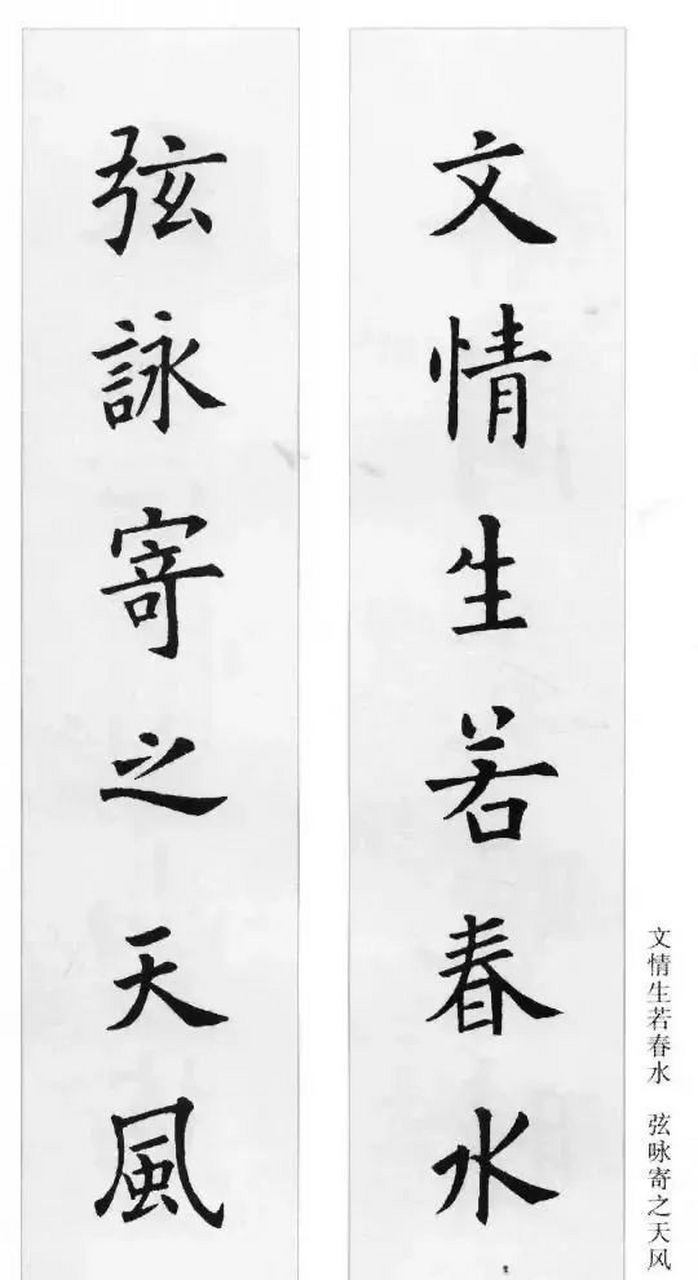 文情生若春水
弦詠寄之天風
文情生若春水　弦咏寄之天风